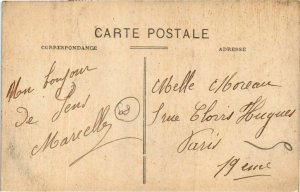 CARTE POSTALE
CORRESPONDANCE
ADRESSE
Mon bonjour
De Sens
Marcelle
Melle Moreau
5 rue Clovis Hugues
Paris
19 eme